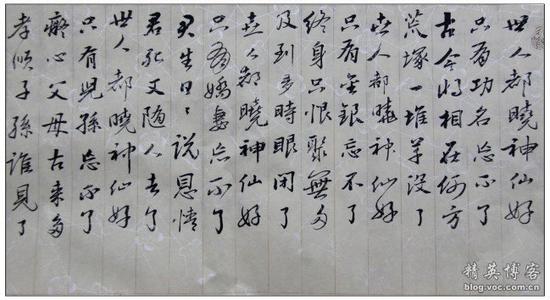 世人都曉神仙好
只有功名忘不了
古今將相在何方
荒塚一堆草没了
世人都曉神仙好
只有金銀忘不了
終身只恨聚無多
及到多時眼閉了
世人都曉神仙好
只有嬌妻忘不了
君生日〻說恩情
君死又隨人去了
世人都曉神仙好
只有兒孫忘不了
癡心父母古来多
孝順子孫誰見了
精英博客
blog.voc.com.cn